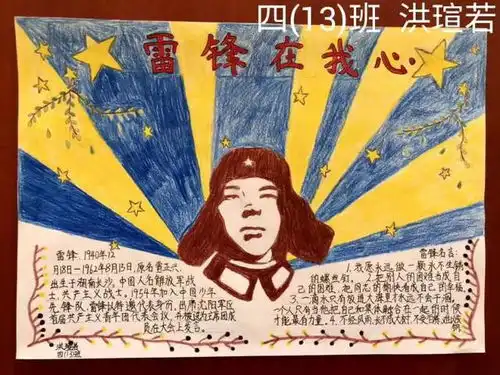 四(13)班 洪瑄若
雷锋在我心
雷锋,1940年12
月18日-1962年8月15日,原名雷正兴,
出生于湖南长沙,中国人名解放军战
士,共产主义战士,1954年加入中国少年
先锋队,雷锋以特邀代表身份,出席沈阳军区
首届共产主义青年团代表会议,并被选为主席团成
员在大会上发言。
四(13)班
雷锋名言:
1.我愿永远做一颗永不生锈
的螺丝钉。2.把别人的困难当成自
己的困难,把同志的愉快看成自己的幸福。
3.一滴水只有放进大海里才永远不会干涸,
一个人只有当他把自己和集体融合在一起的时候
才能最有力量。4.不经风雨,长不成大树,不受百炼,难以成
钢